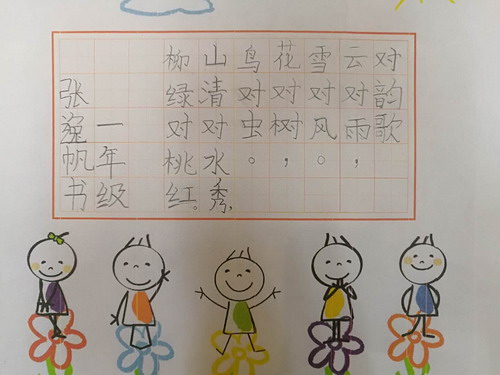 对韵歌
云对雨，
雪对风。
花对树，
鸟对虫。
山清水秀，
柳绿桃红。
一年级
张逸帆书